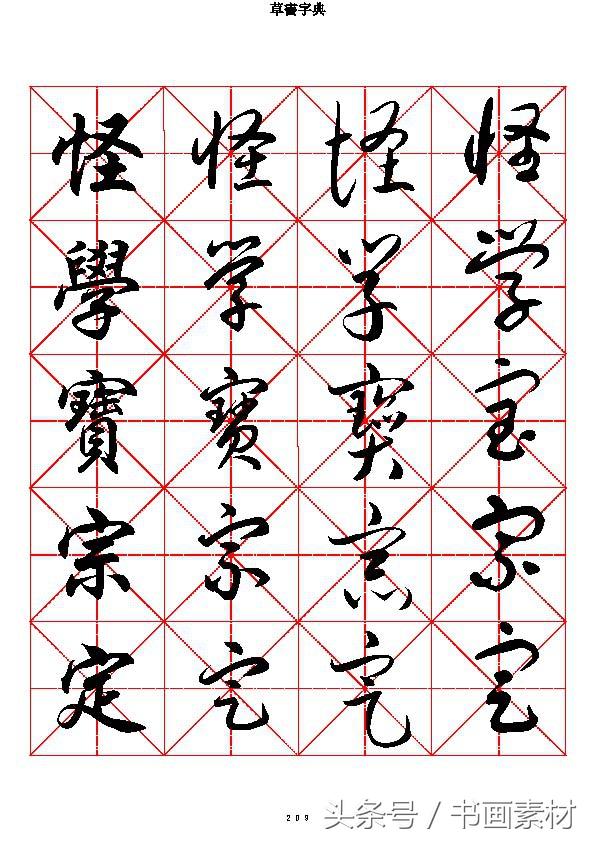 草書字典
怪怪怪怪
學学学学
寶寳寳宝
宗宗宗宗
定定定定
209
头条号 / 书画素材